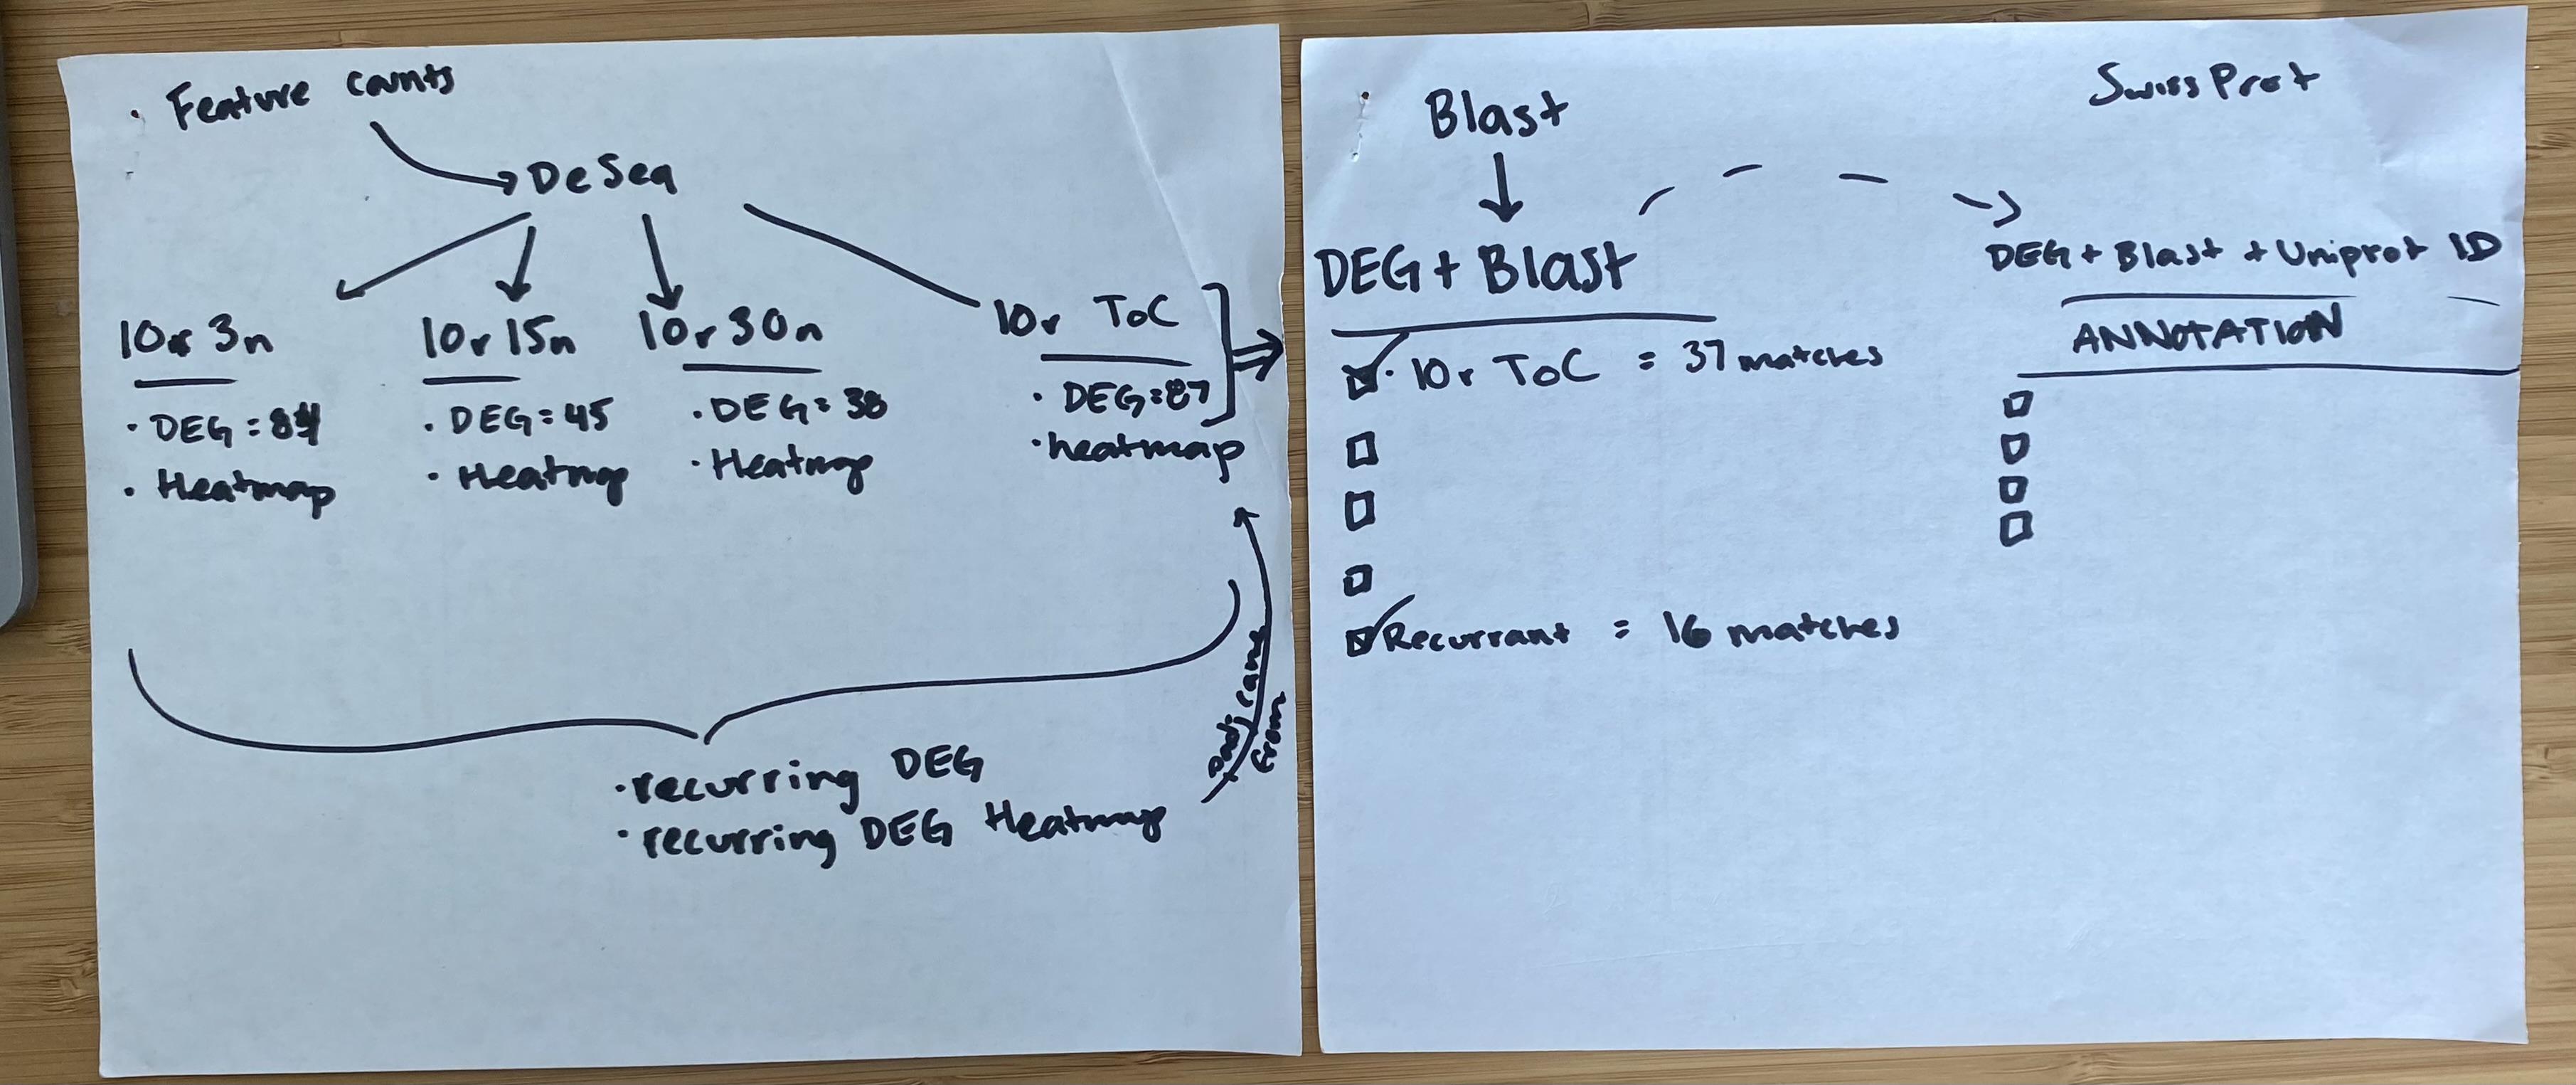 · Feature counts
DeSeq
10r 3n
· DEG = 84
· Heatmap
10r 15n
· DEG = 45
· Heatmap
10r 30n
· DEG = 38
· Heatmap
10r ToC
· DEG = 87
· heatmap
· recurring DEG
· recurring DEG Heatmap
padj came
from
Blast
DEG + Blast
· 10r ToC = 37 matches
Recurrant = 16 matches
SwissProt
DEG + Blast + Uniprot ID
ANNOTATION